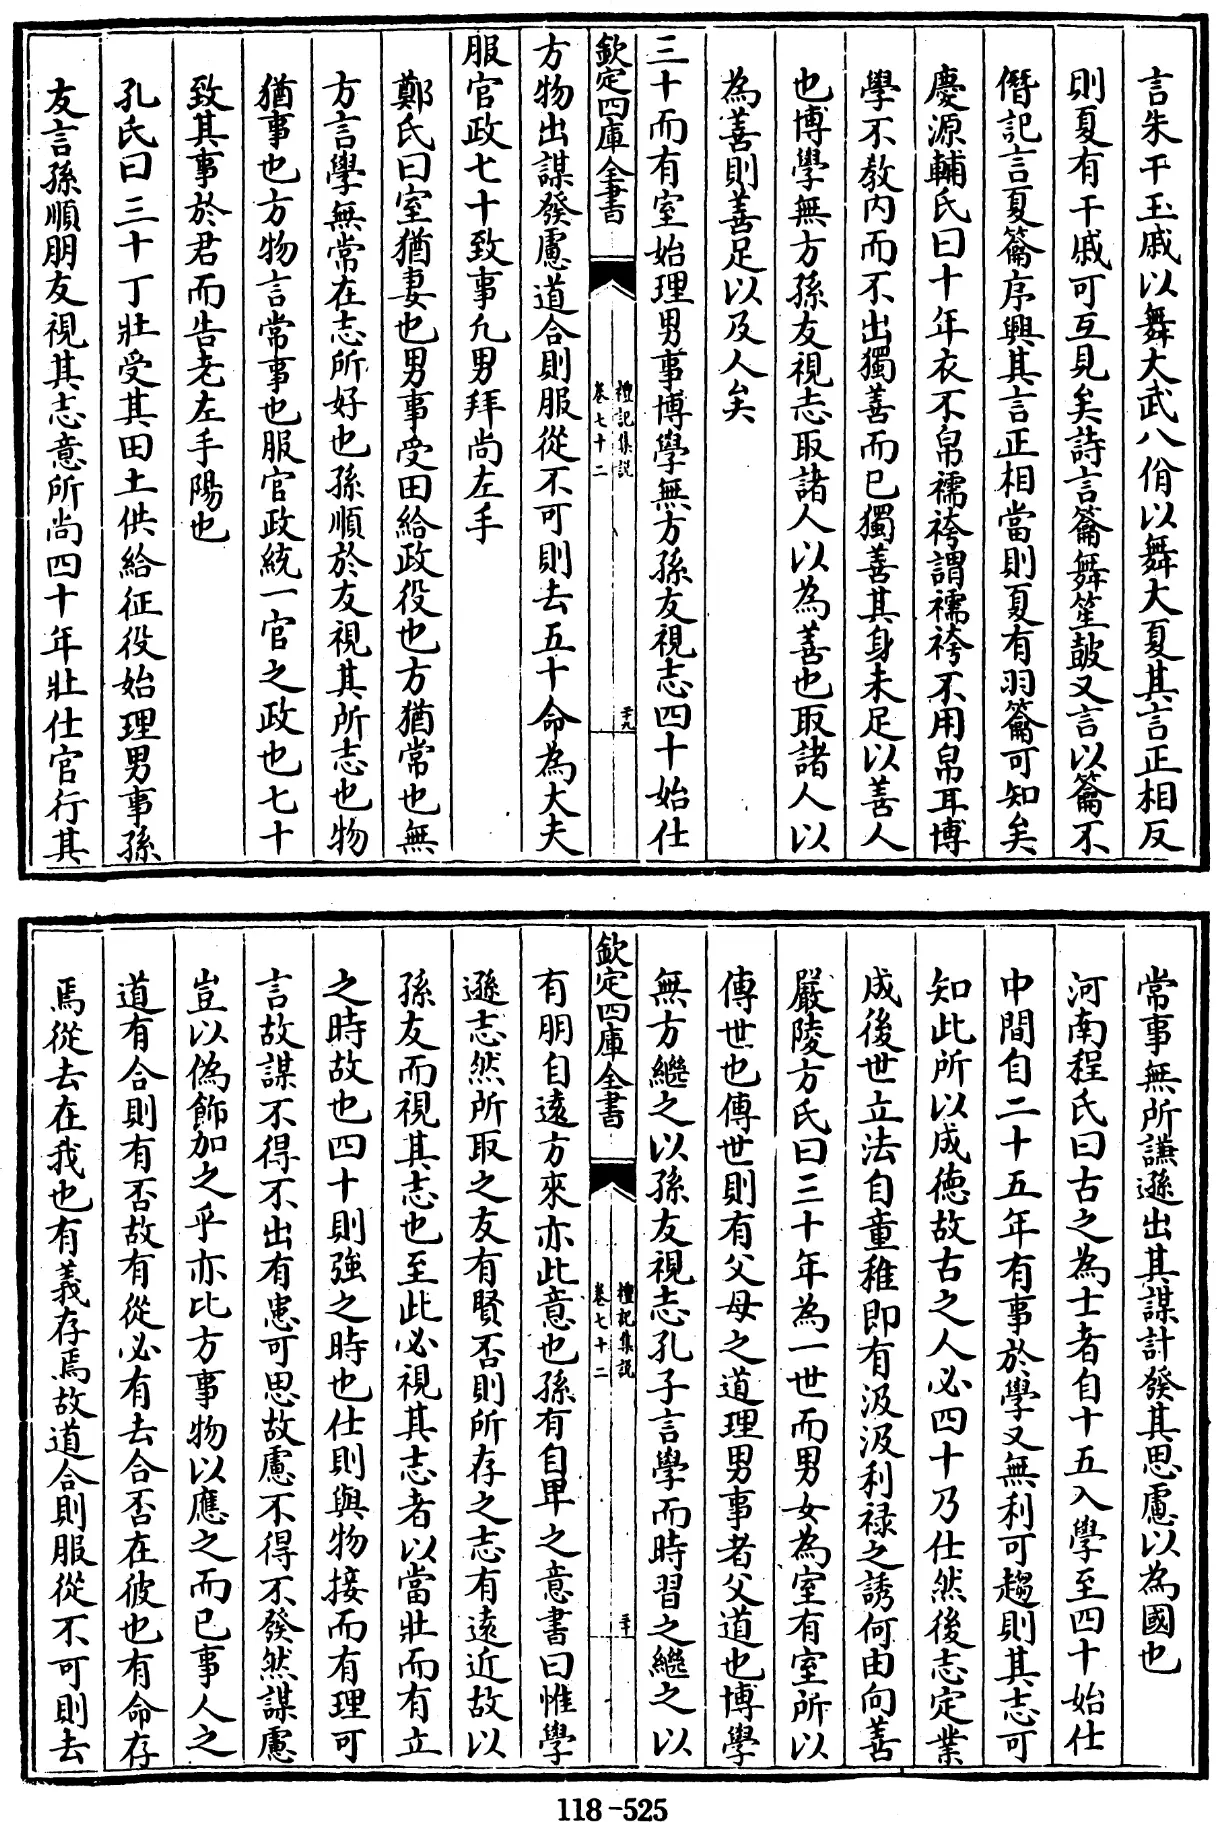 言朱干玉戚以舞大武八佾以舞大夏其言正相反
則夏有干戚可互見矣詩言籥舞笙鼓又言以籥不
僭記言夏籥序興其言正相當則夏有羽籥可知矣
慶源輔氏曰十年衣不帛襦袴謂襦袴不用帛耳博
學不教内而不出獨善而已獨善其身未足以善人
也博學無方孫友視志取諸人以為善也取諸人以
為善則善足以及人矣
三十而有室始理男事博學無方孫友視志四十始仕
欽定四庫全書
禮記集説
卷七十二
二十九
方物出謀發慮道合則服從不可則去五十命為大夫
服官政七十致事凢男拜尚左手
鄭氏曰室猶妻也男事受田給政役也方猶常也無
方言學無常在志所好也孫順於友視其所志也物
猶事也方物言常事也服官政統一官之政也七十
致其事於君而告老左手陽也
孔氏曰三十丁壯受其田土供給征役始理男事孫
友言孫順朋友視其志意所尚四十年壯仕官行其
常事無所謙遜出其謀計發其思慮以為國也
河南程氏曰古之為士者自十五入學至四十始仕
中間自二十五年有事於學又無利可趨則其志可
知此所以成德故古之人必四十乃仕然後志定業
成後世立法自童稚即有汲汲利禄之誘何由向善
嚴陵方氏曰三十年為一世而男女為室有室所以
傳世也傳世則有父母之道理男事者父道也博學
無方繼之以孫友視志孔子言學而時習之繼之以
欽定四庫全書
禮記集説
卷七十二
三十
有朋自逺方來亦此意也孫有自卑之意書曰惟學
遜志然所取之友有賢否則所存之志有逺近故以
孫友而視其志也至此必視其志者以當壯而有立
之時故也四十則強之時也仕則與物接而有理可
言故謀不得不出有患可思故慮不得不發然謀慮
豈以偽飾加之乎亦比方事物以應之而已事人之
道有合則有否故有從必有去合否在彼也有命存
焉從去在我也有義存焉故道合則服從不可則去
118-525